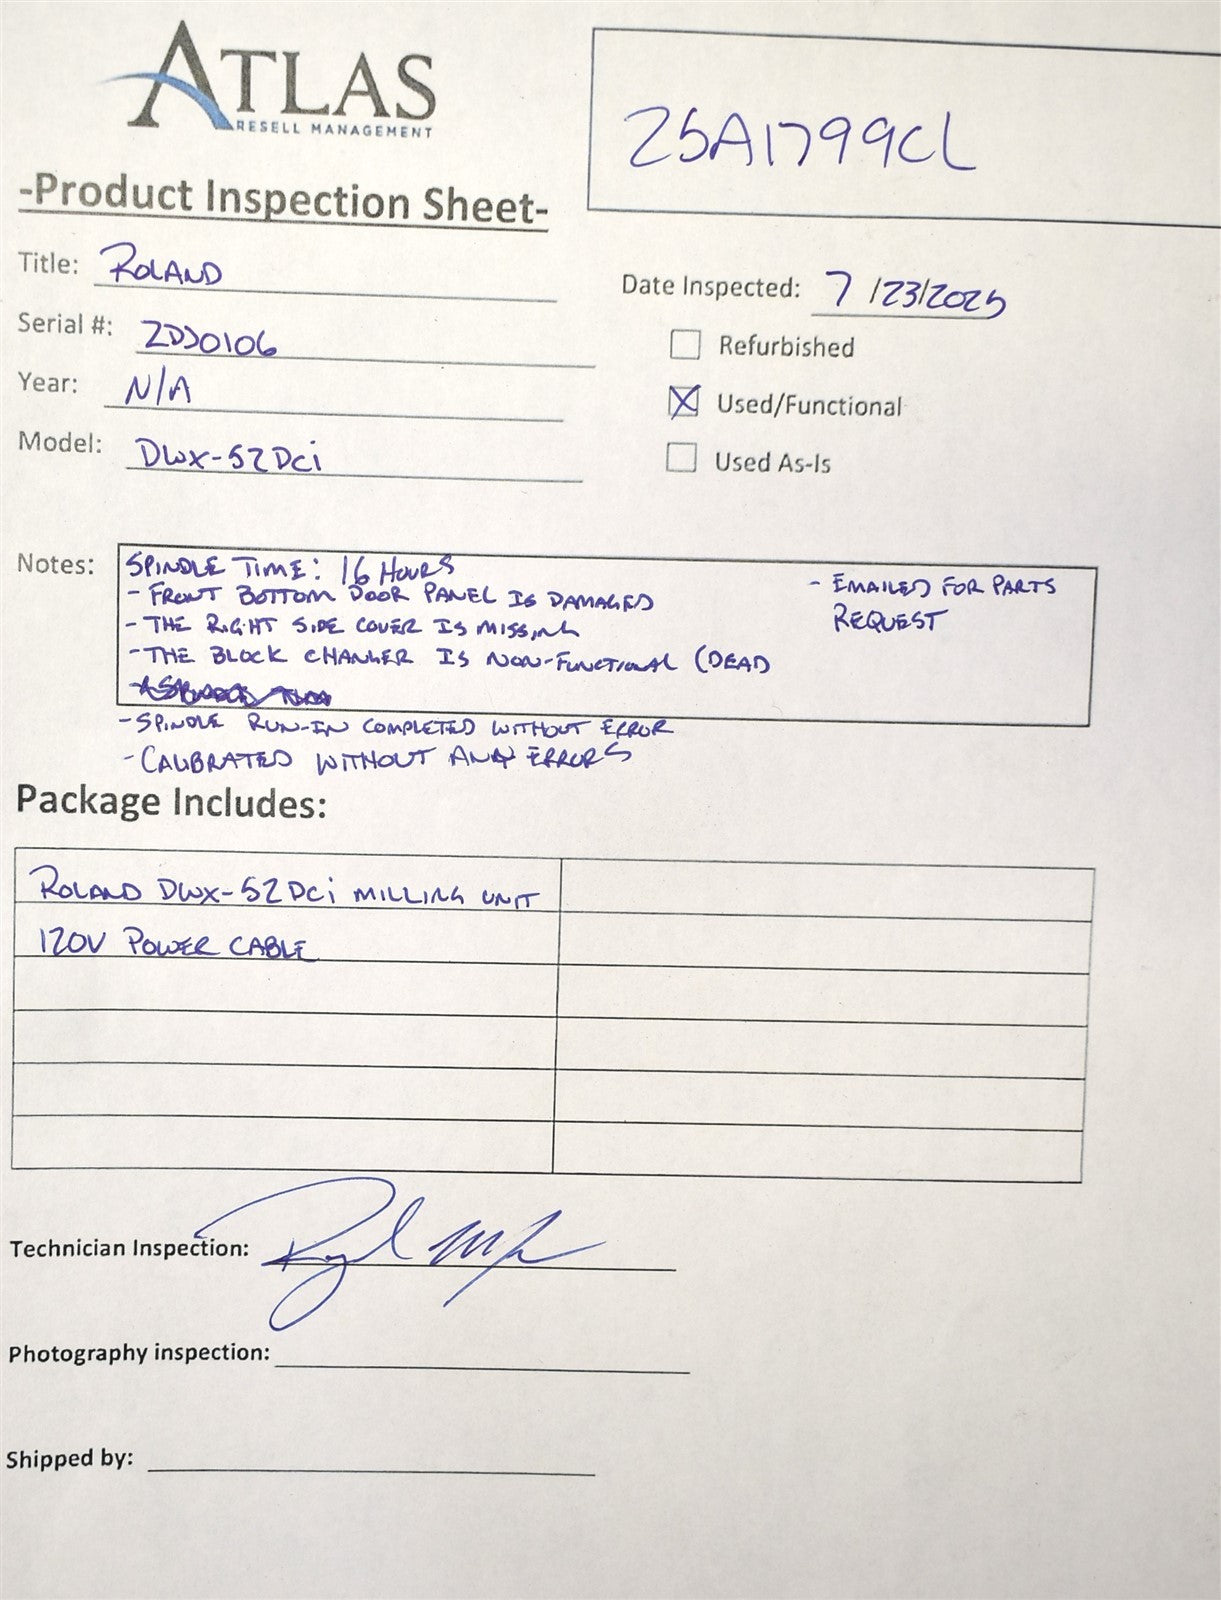 ATLAS
RESELL MANAGEMENT
25A1799CL
-Product Inspection Sheet-
Title: ROLAND
Date Inspected: 7/23/2025
Serial #: ZDD0106
Refurbished
Year: N/A
Used/Functional
Model: DWX-52DCi
Used As-Is
Notes: SPINDLE TIME: 16 HOURS
- FRONT BOTTOM DOOR PANEL IS DAMAGED
- THE RIGHT SIDE COVER IS MISSING
- THE BLOCK CHANGER IS NON-FUNCTIONAL (DEAD
- EMAILED FOR PARTS
REQUEST
- SPINDLE RUN-IN COMPLETED WITHOUT ERROR
- CALIBRATED WITHOUT ANY ERRORS
Package Includes:
ROLAND DWX-52DCi MILLING UNIT
120V POWER CABLE
Technician Inspection:
Photography inspection:
Shipped by: